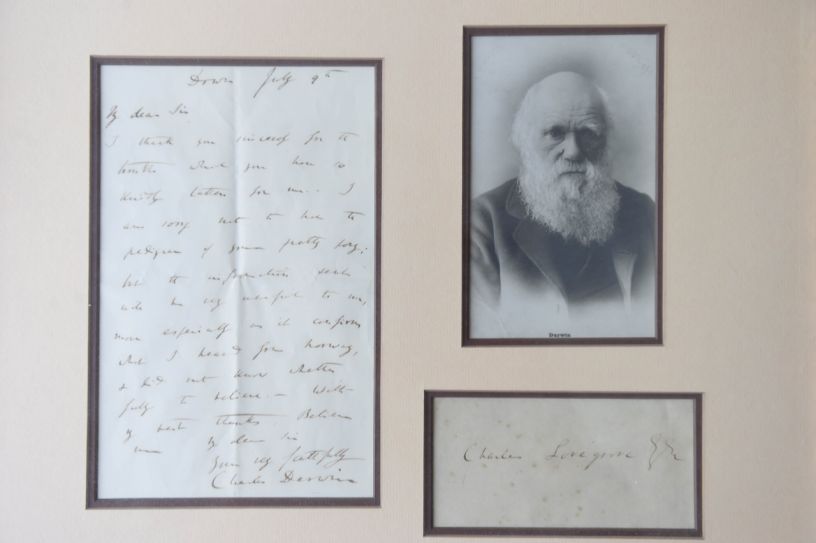 Down July 9th
My dear Sir
I thank you sincerely for the
trouble which you have so
kindly taken for me. I
am sorry not to have the
pedigree of your pretty dog;
but the information sent
will be very useful to me,
more especially as it confirms
what I heard from Norway,
& did not know whether
fully to believe. — With
my best thanks. Believe
me my dear Sir
Yours very faithfully
Charles Darwin
Darwin
Charles Lovegrove